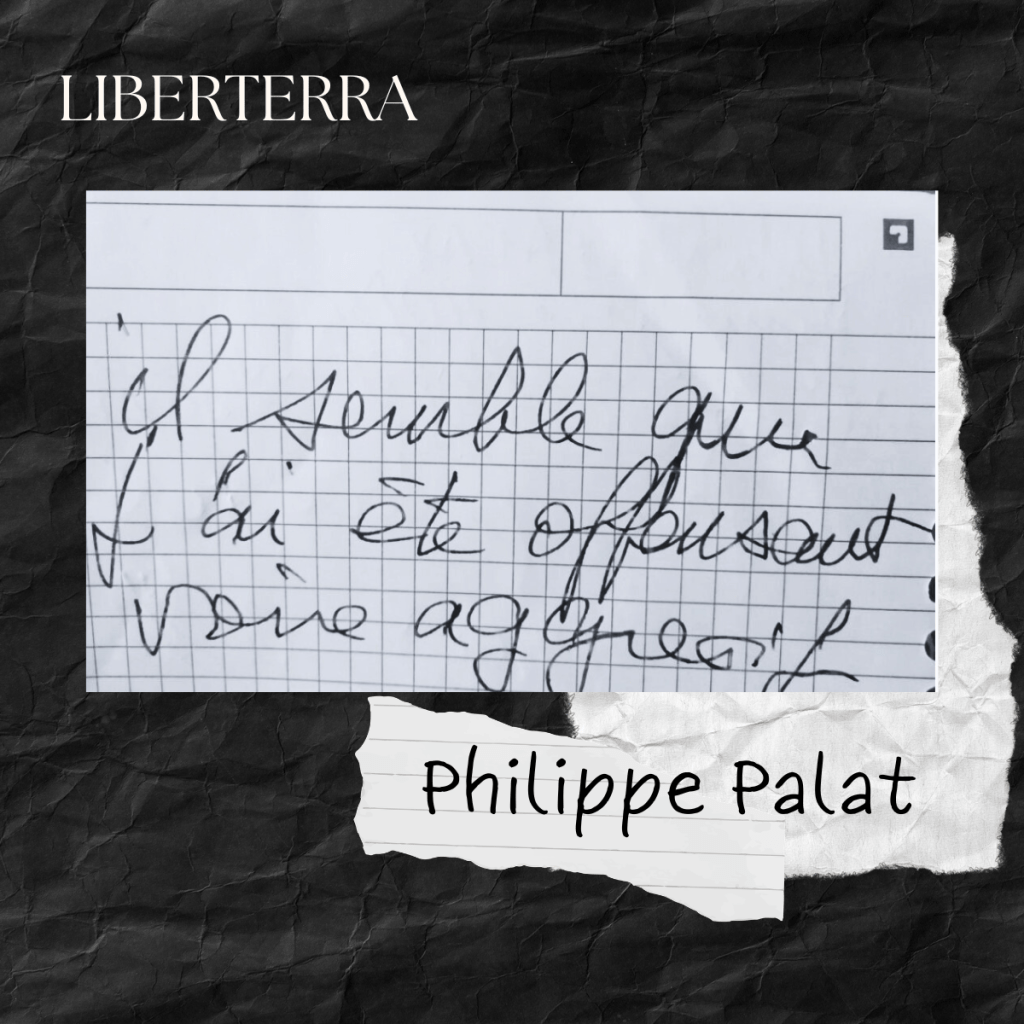 LIBERTERRA
il semble que
J'ai été offensant
voire aggressif
Philippe Palat